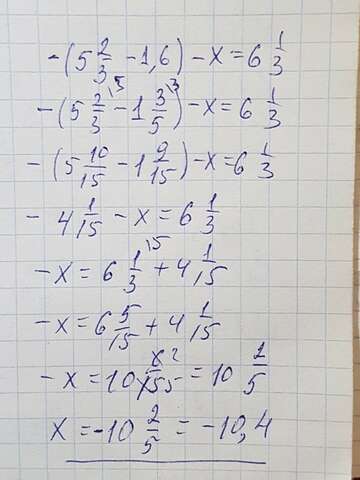 -(5 2/3 - 1,6) - x = 6 1/3
-(5 2/3 - 1 3/5) - x = 6 1/3
-(5 10/15 - 1 9/15) - x = 6 1/3
- 4 1/15 - x = 6 1/3
-x = 6 1/3 + 4 1/15
-x = 6 5/15 + 4 1/15
-x = 10 6/15 = 10 2/5
x = -10 2/5 = -10,4